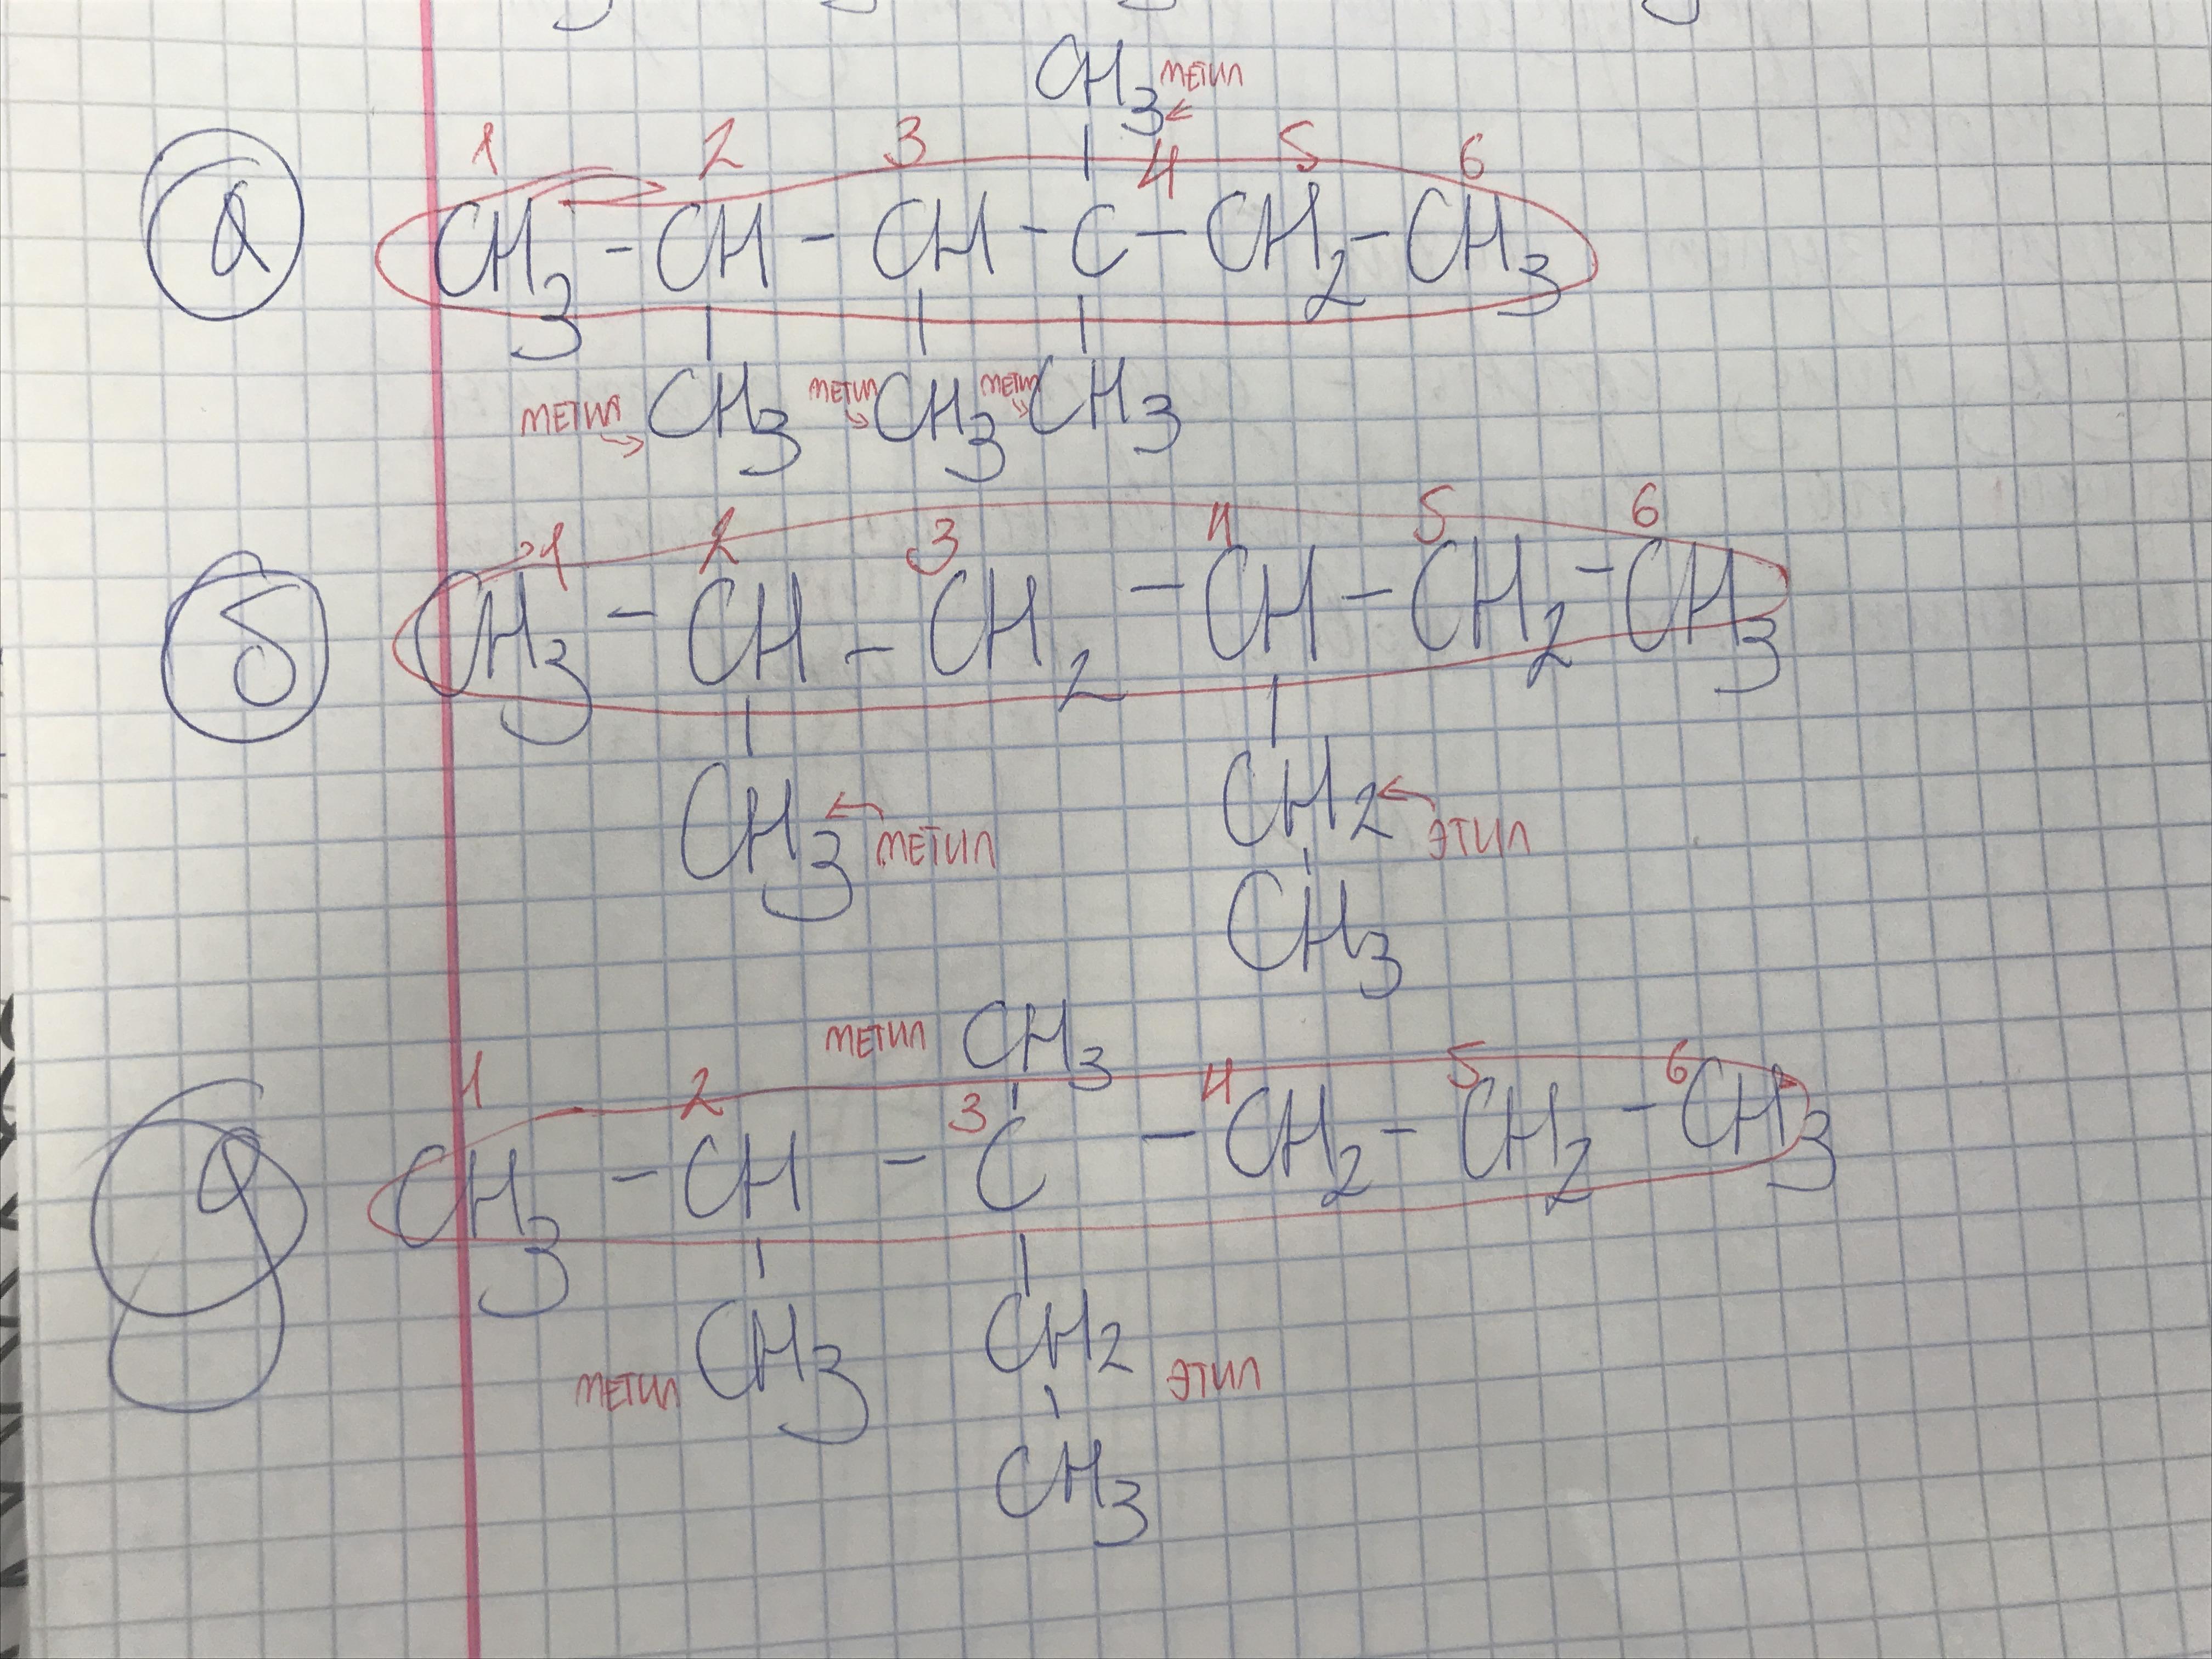 CH3 метил
1 2 3 4 5 6
а CH3 - CH - CH - C - CH2 - CH3
метил CH3 метил CH3 метил CH3
1 2 3 4 5 6
б CH3 - CH - CH2 - CH - CH2 - CH3
CH3 метил CH2 этил
CH3
метил CH3
1 2 3 4 5 6
д CH3 - CH - C - CH2 - CH2 - CH3
метил CH3 CH2 этил
CH3